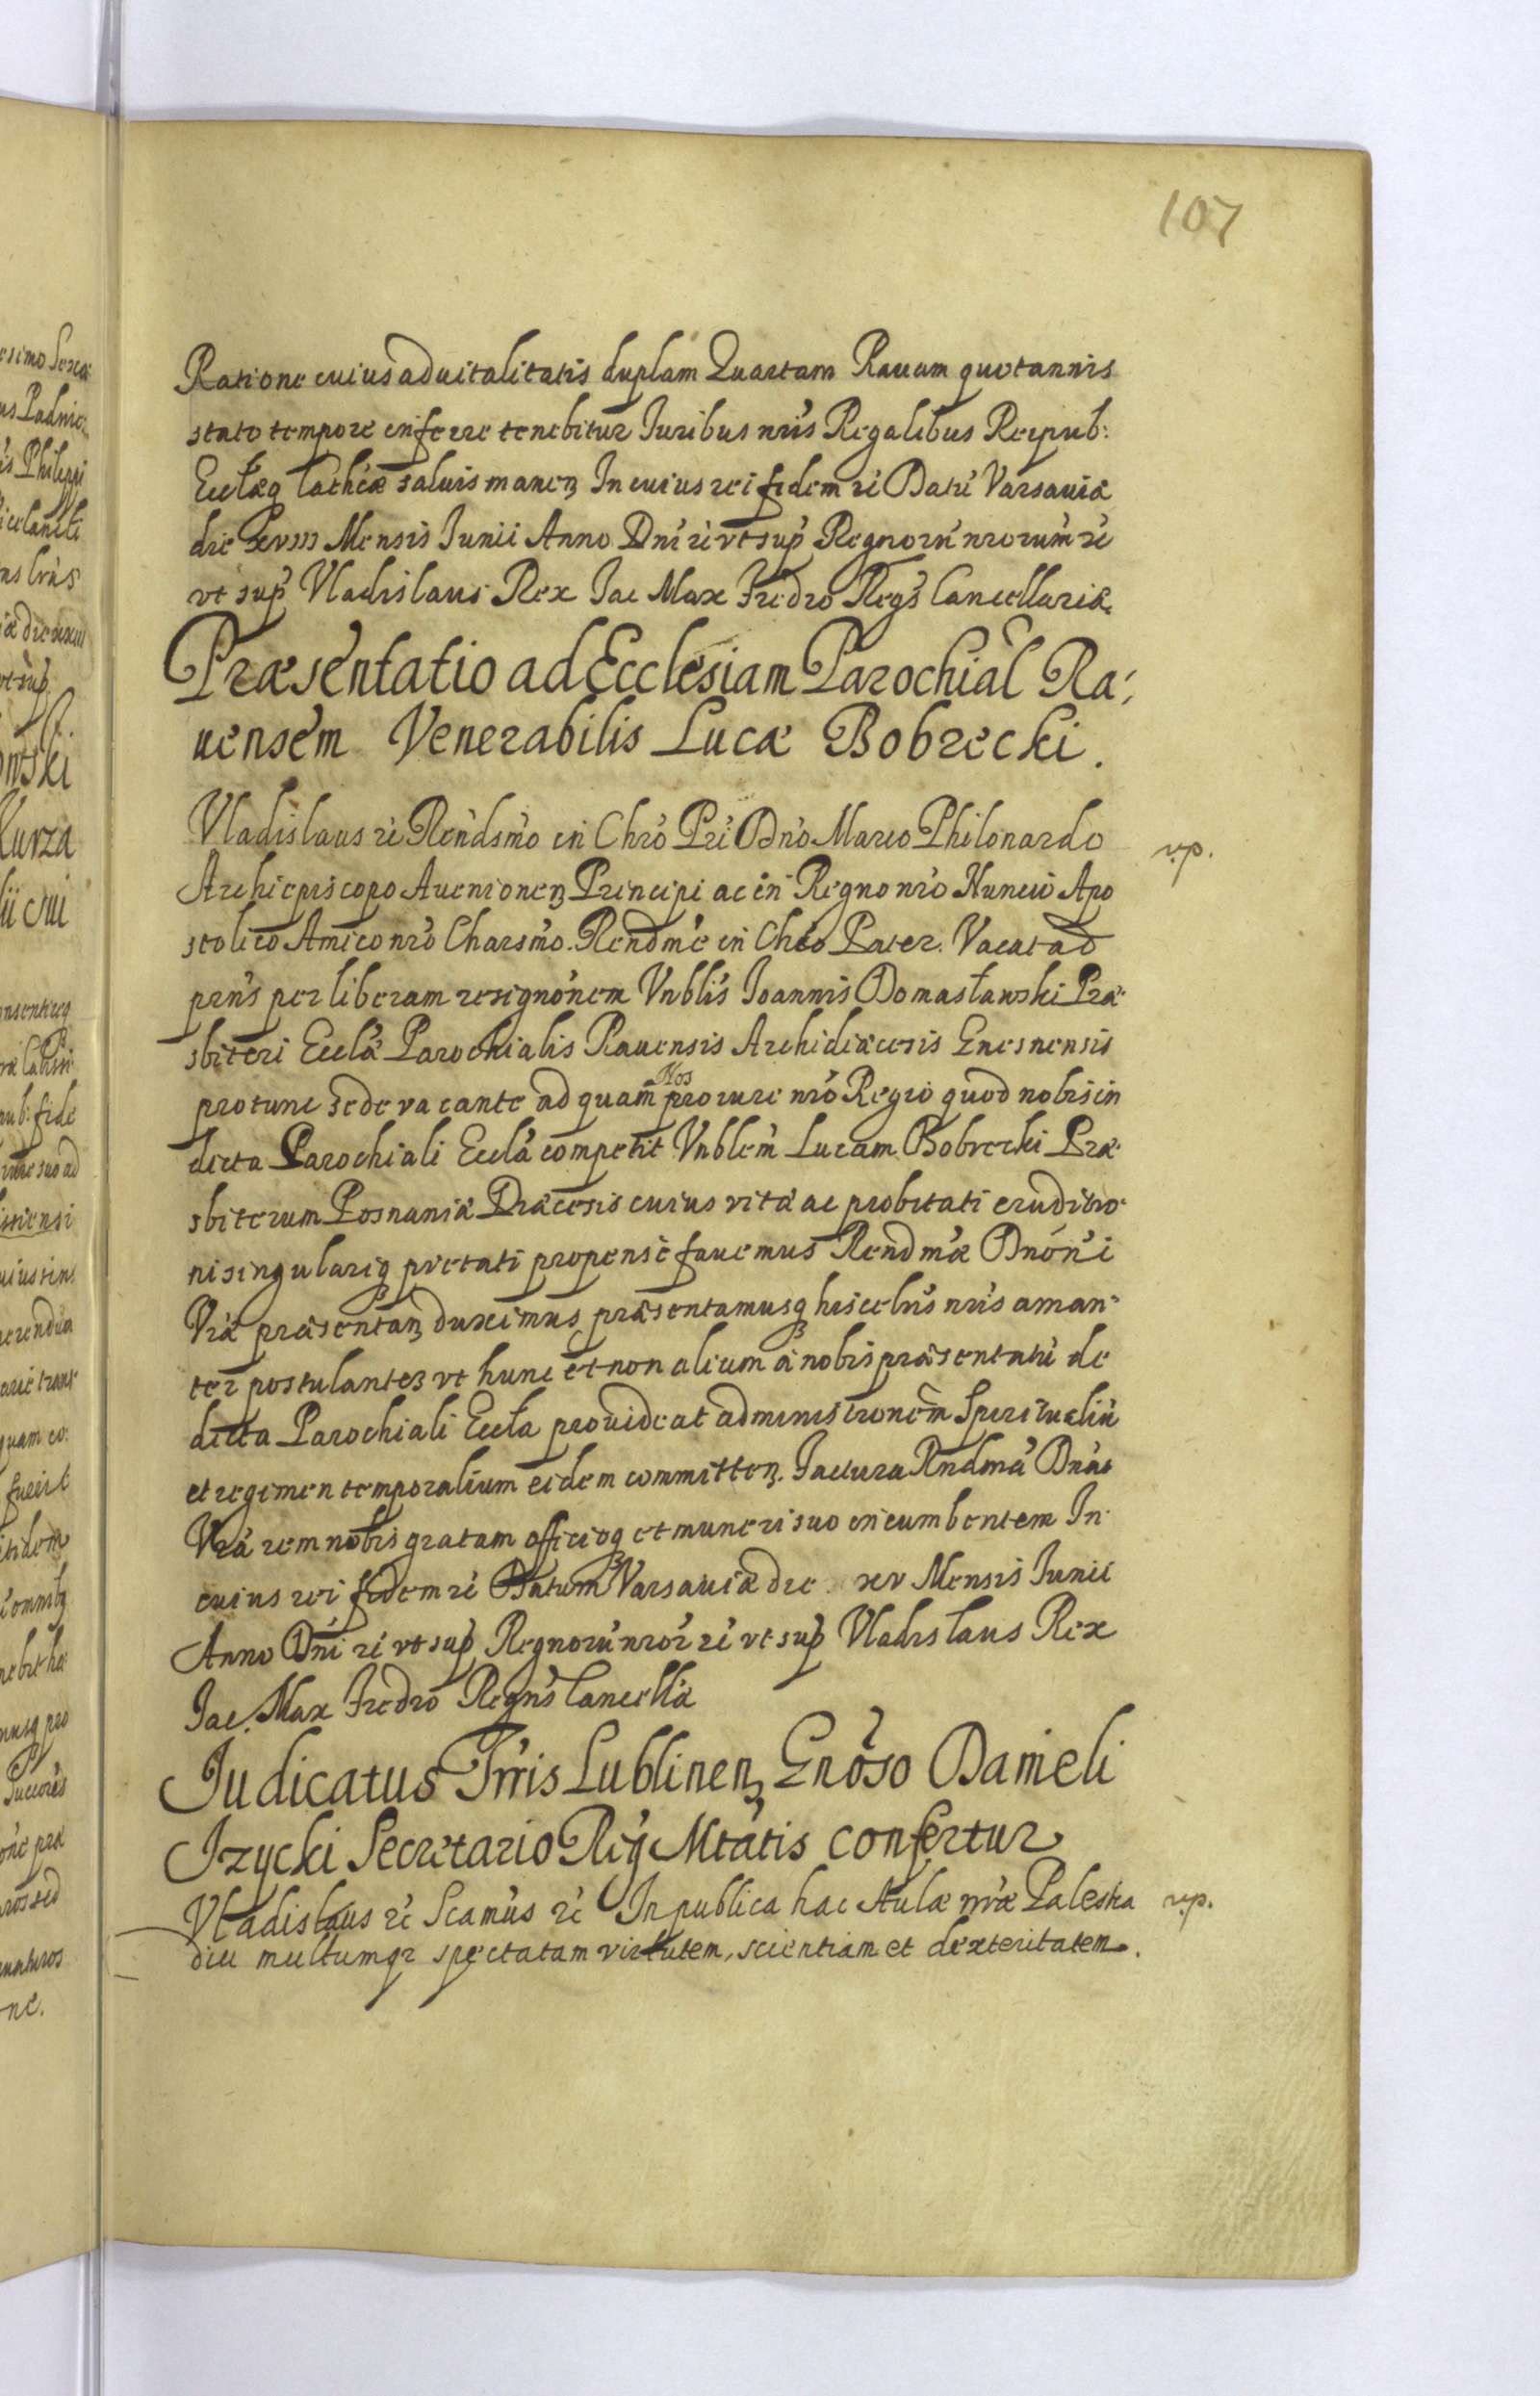 107
Ratione cuius aduitalitatis duplam Quartam Rauam quotannis
stato tempore inferre tenebitur Iuribus nris Regalibus Reipub:
Ecclæq Cathcæ saluis manen In cuius rei fidem rč Datū Varsauiæ
die xviii Mensis Iunii Anno Dni rč vt sup Regnorū nrorum rč
vt sup Vladislaus Rex Iac Max Fredro Regs Cancellariæ
Præsentatio ad Ecclesiam Parochial Ra:
uensem Venerabilis Lucæ Bobrecki.
Vladislaus rč Rendsmo in Chro Pri Dno Mario Philonardo
v.p.
Archiepiscopo Auenionen Principi ac in Regno nro Nuncio Apo
stolico Amico nro Charsmo. Rendme in Chro Pater. Vacat ad
prns per liberam resignonem Vnblis Ioannis Domasławski Præ-
sbiteri Ecclæ Parochialis Rauensis Archidiæcesis Gnesnensis
pro tunc sede vacante ad quam Nos pro iure nro Regio quod nobis in
dicta Parochiali Eccla competit Vnblem Lucam Bobrecki Præ-
sbiterum Posnaniæ Diæcesis cuius vitæ ac probitati eruditio-
ni singulariq pietati propense fauemus Rendmæ Dnoni
Vræ præsentan duximus præsentamusq hisce lris nris aman-
ter postulantes vt hunc et non alium a nobis præsentatū de
dicta Parochiali Eccla prouideat administronem Spiritualiū
et regimen temporalium eidem committen. Factura Rndma Dnao
Vra rem nobis gratam officioq et muneri suo incumbentem In
cuius rei fidem rč Datum Varsauiæ die xv Mensis Iunii
Anno Dni rč vt sup Regnorū nror rč vt sup Vladislaus Rex
Iac. Max Fredro Regns Cancellæ
Judicatus Trris Lublinen Gnoso Danieli
Izycki Secretario Rig Mtatis confertur
Vladislaus rč Scamus rč In publica hac Aulæ nræ Palestra
v.p.
diu multumqz spectatam virtutem, scientiam et dexteritatem.